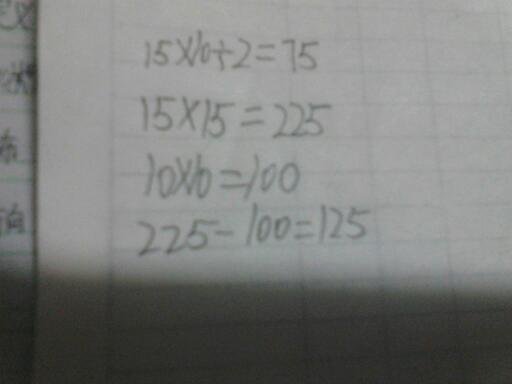 15×10÷2=75
15×15=225
10×10=100
225-100=125